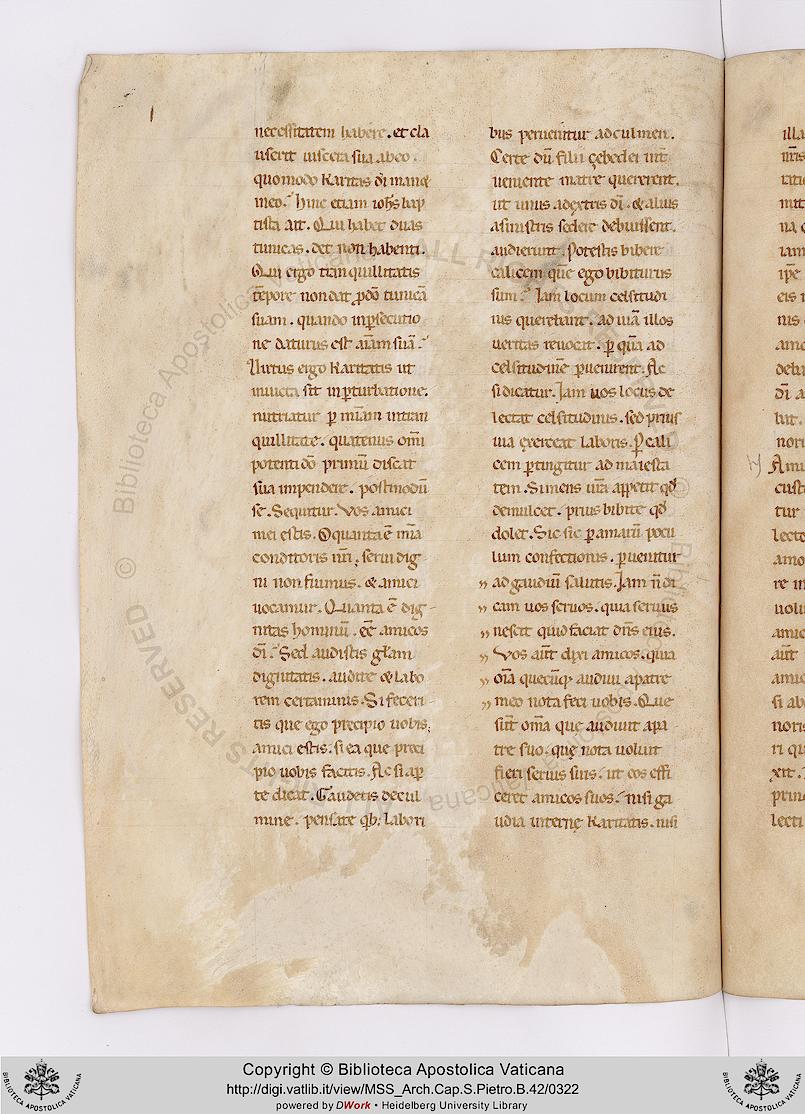 necessitatem habere. et cla
userit uiscera sua ab eo.
quomodo karitas dı̄ manet
in eo? Hinc etiam ioh̄s bap
tista ait. Qui habet duas
tunicas. det non habenti.
Qui ergo tranquillitatis
tēpore non dat ꝓ dō tunicā
suam. quando in ꝑsecutio
ne daturus est aı̄am suā?
Uirtus ergo karitatis ut
inuicta sit in ꝑturbatione.
nutriatur ꝑ mı̄am in tran
quillitate. quatenus omı̄
potenti dō primū discat
sua impendere. postmodū
se. Sequitur. Vos amici
mei estis. O quanta ē mı̄a
conditoris nr̄i; serui dig
ni non sumus. & amici
uocamur. Quanta ē dig-
nitas hominū. eē amicos
dı̄? Sed audistis gl̄am
dignitatis. audite & labo
rem certaminis. Si feceri-
tis que ego precipio uobis;
amici estis. si ea que preci
pio uobis facitis. Ac si aꝑ
te dicat. Gaudetis de cul
mine. pensate qb; labori
bus peruenitur ad culmen.
Certe dū filii çebedei int̄
ueniente matre quererent.
ut unus a dextris dı̄. & alius
a sinistris sedere debuissent.
audierunt. Potestis bibere
calicem quē ego bibiturus
sum? Iam locum celsitudi
nis querebant. ad uiā illos
ueritas reuocat. ꝑ quā ad
celsitudinē ꝑuenirent. Ac
si dicatur. Iam uos locus de
lectat celsitudinis. sed prius
uia exerceat laboris. Ꝑ cali
cem ꝑtingitur ad maiesta
tem. Si mens ur̄a appetit qd̄
demulcet. prius bibite qd̄
dolet. Sic sic ꝑ amarū pocu
lum confectionis. ꝑuenitur
,, ad gaudiū salutis. Iam n̄ di
,, cam uos seruos. quia seruus
,, nescit quid faciat dn̄s eius.
,, Vos aūt dixi amicos. quia
,, om̄a quecūq; audiui a patre
,, meo nota feci uobis. Que
sūt om̄a que audiuit a pa
tre suo. quę nota uoluit
fieri seruis suis. ut eos effi
ceret amicos suos? nisi ga
udia internę karitatis. nisi
illa
Amı
custo
tur
lecte
amo
re in
amic
aūt
si ab
noris
ri qu
xit.
prin
lecti
Copyright © Biblioteca Apostolica Vaticana
http://digi.vatlib.it/view/MSS_Arch.Cap.S.Pietro.B.42/0322
powered by DWork • Heidelberg University Library
BIBLIOTECA APOSTOLICA VATICANA
BIBLIOTECA APOSTOLICA VATICANA